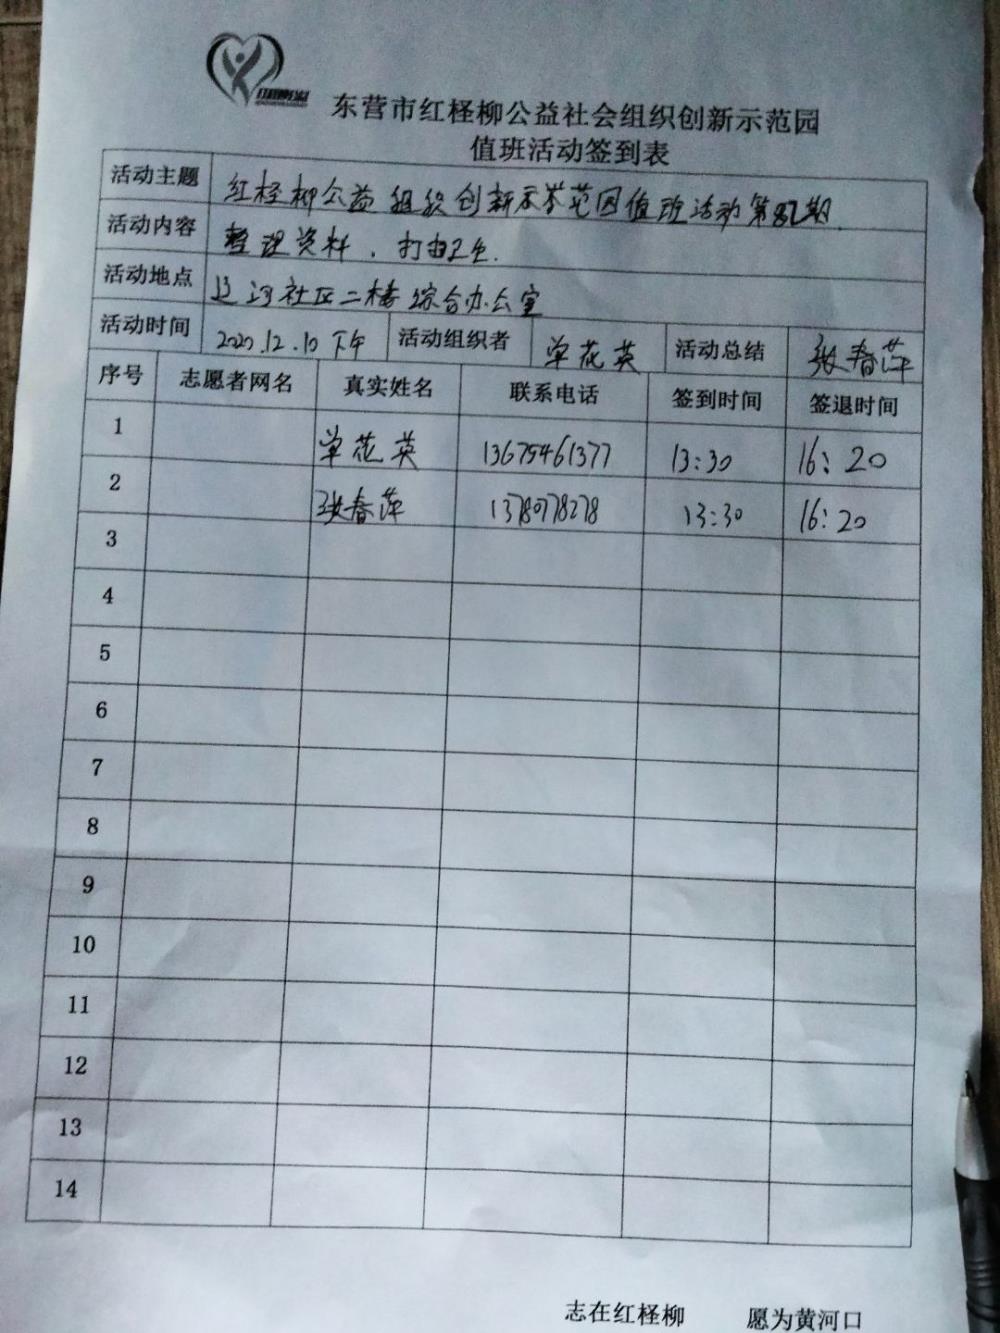 东营市红柽柳公益社会组织创新示范园
值班活动签到表
活动主题 红柽柳公益组织创新示范园值班活动第82期.
活动内容 整理资料、打扫卫生.
活动地点 辽河社区二楼综合办公室
活动时间 2020.12.10下午 活动组织者 单花英 活动总结 张春萍
序号 志愿者网名 真实姓名 联系电话 签到时间 签退时间
1 单花英 13675461377 13:30 16:20
2 张春萍 1378078278 13:30 16:20
3
4
5
6
7
8
9
10
11
12
13
14
志在红柽柳 愿为黄河口